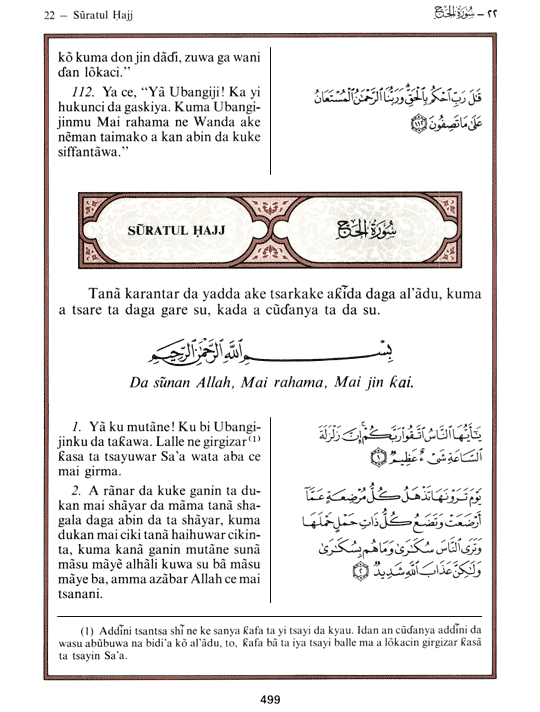 22 — Sũratul Ḥajj
٢٢ – سُورَةُ الحَجّ
kõ kuma don jin dãɗi, zuwa ga wani
ɗan lõkaci.”
112. Ya ce, “Yã Ubangiji! Ka yi
hukunci da gaskiya. Kuma Ubangi-
jinmu Mai rahama ne Wanda ake
nẽman taimako a kan abin da kuke
siffantãwa.”
قَٰلَ رَبِّ ٱحۡكُم بِٱلۡحَقِّۗ وَرَبُّنَا ٱلرَّحۡمَٰنُ ٱلۡمُسۡتَعَانُ
عَلَىٰ مَا تَصِفُونَ ١١٢
SŨRATUL ḤAJJ
سُورَةُ الحَجّ
Tanã karantar da yadda ake tsarkake aƙĩda daga al’ãdu, kuma
a tsare ta daga gare su, kada a cũɗanya ta da su.
بِسۡمِ ٱللَّهِ ٱلرَّحۡمَٰنِ ٱلرَّحِيمِ
Da sũnan Allah, Mai rahama, Mai jin ƙai.
1. Yã ku mutãne! Ku bi Ubangi-
jinku da taƙawa. Lalle ne girgizar(1)
ƙasa ta tsayuwar Sa’a wata aba ce
mai girma.
2. A rãnar da kuke ganin ta du-
kan mai shãyar da mãma tanã sha-
gala daga abin da ta shãyar, kuma
dukan mai ciki tanã haihuwar cikin-
ta, kuma kanã ganin mutãne sunã
mãsu mãyẽ alhãli kuwa su bã mãsu
mãye ba, amma azãbar Allah ce mai
tsanani.
يَٰٓأَيُّهَا ٱلنَّاسُ ٱتَّقُوا۟ رَبَّكُمۡۚ إِنَّ زَلۡزَلَةَ
ٱلسَّاعَةِ شَيۡءٌ عَظِيمٌ ١
يَوۡمَ تَرَوۡنَهَا تَذۡهَلُ كُلُّ مُرۡضِعَةٍ عَمَّآ
أَرۡضَعَتۡ وَتَضَعُ كُلُّ ذَاتِ حَمۡلٍ حَمۡلَهَا
وَتَرَى ٱلنَّاسَ سُكَٰرَىٰ وَمَا هُم بِسُكَٰرَىٰ
وَلَٰكِنَّ عَذَابَ ٱللَّهِ شَدِيدٌ ٢
(1) Addĩni tsantsa shĩ ne ke sanya ƙafa ta yi tsayi da kyau. Idan an cũɗanya addĩni da
wasu abũbuwa na bidi’a kõ al’ãdu, to, ƙafa bã ta iya tsayi balle ma a lõkacin girgizar ƙasã
ta tsayin Sa’a.
499